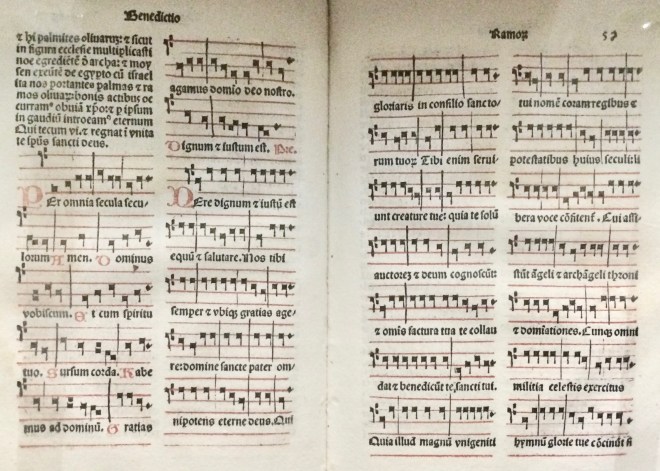 Benedictio
⁊ hi palmites olivarū: ⁊ sicut
in figura ecclesie multiplicasti
noe egrediētē ō archa: ⁊ moy
sen exeūtē de egypto cū israel
ita nos portantes palmas ⁊ ra
mos olivarū: bonis actibus oc
curramꝰ obuiā xp̄o: ⁊ p ipsum
in gaudiū introeamꝰ eternum
Qui tecum viuit ⁊ regnat ī vnita
te spūs sancti deus.
Per omnia secula secu/
lorum Amen. Dominus
vobiscum. Et cum spiritu
tuo. Sursum corda. Habe
mus ad dominū. Gratias
agamus domīo deo nostro.
Dignum ⁊ iustum est. Pre.
Vere dignum ⁊ iustū est
equū ⁊ salutare. Nos tibi
semper ⁊ vbiqꝫ gratias age/
re: domine sancte pater om/
nipotens eterne deus. Qui
Ramoꝝ
gloriaris in consilio sancto/
rum tuoꝝ Tibi enim serui/
unt creature tue: quia te solū
auctorez ⁊ deum cognoscūt:
⁊ omīs factura tua te collau
dat ⁊ benedicūt te sancti tui.
Quia illud magnū vnigeniti
tui nomē coram regibus ⁊
potestatibus huius seculi li
bera voce cōfitent᷑. Cui assi/
stūt āgeli ⁊ archāgeli throni
⁊ domīationes. Cunqꝫ omni
militia celestis exercitus
hymnū glorie tue cōcinūt si